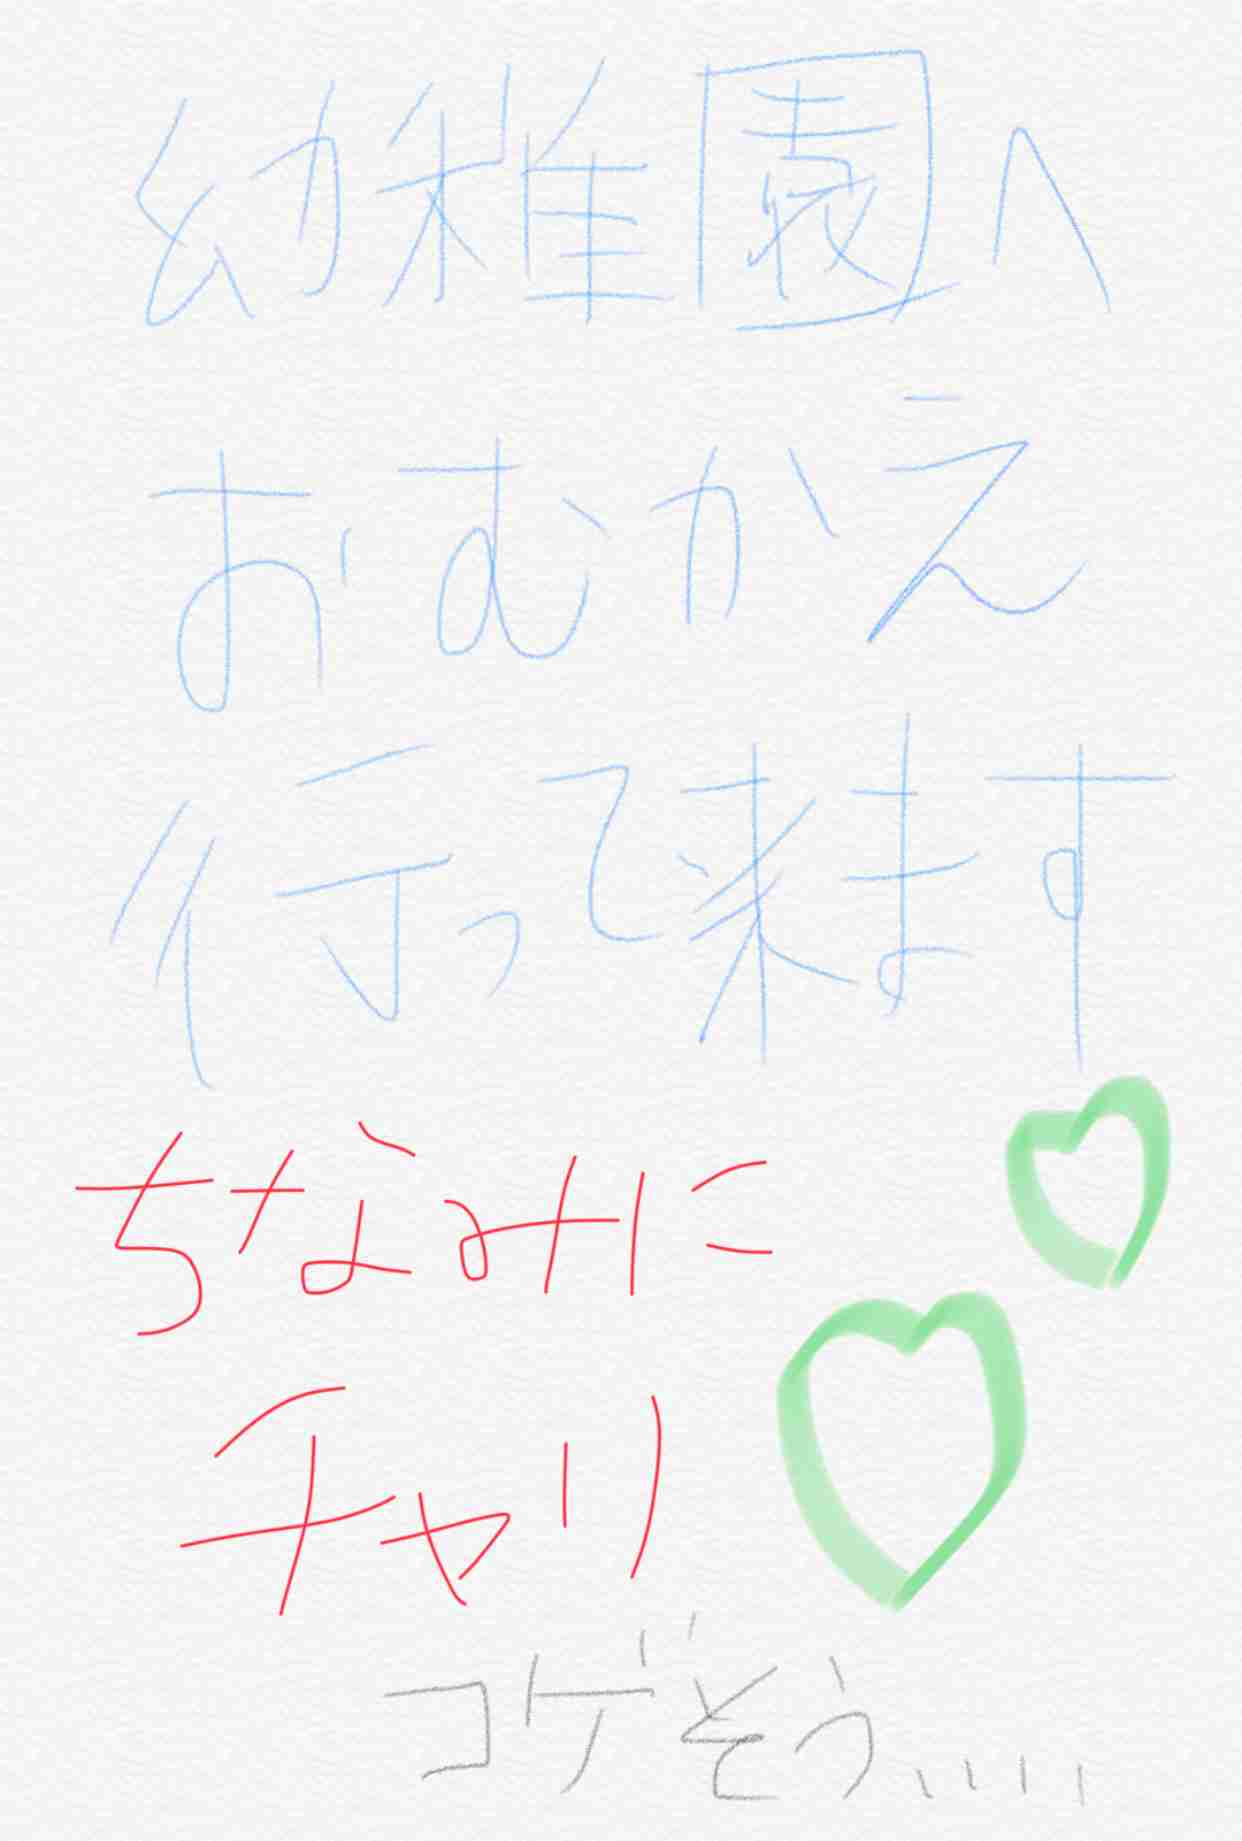 幼稚園へ
おむかえ
行って来ます
ちなみに
チャリ
コゲそう、、、、